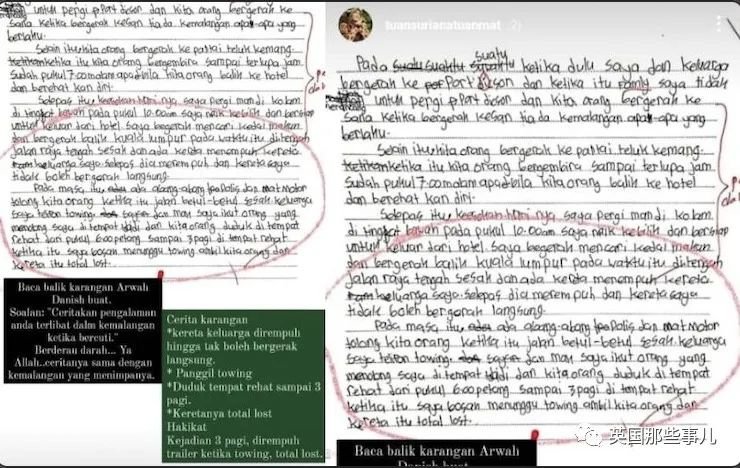 untuk pergi pPort dcson dan kita orang bergerak ke
sana ketika bergerak kesan tiada kemalangan apa-apa yang
berlaku.
Selain itu kita orang bergerak ke pantai teluk kemang.
kita orang bergembira sampai terlupa jam
Sudah pukul 7:00malam apadbila kita orang balik ke hotel
dan berehat kan diri.
Selepas itu keesokan hari nya, saya pergi mandi kolam
di tingkat bawah pada pukul 10:00am saya naik ke bilik dan bersiap
untuk keluar dari hotel saya begerak mencari kedai makan
dan bergerak balik kuala lumpur pada waktu itu ditengah
jalan raya tengah sesak dan ada kereta merempuh kereta
keluarga saya selepas dia merempuh dan kereta saya
tidak boleh bergerak langsung.
Pada masa itu ada abang-abang polis dan mat motor
tolong kita orang ketika itu jalan betul-betul sesak keluarga
saya telefon towing dan mak saya ikut orang yang
menolong saya di tempat tadi dan kita orang duduk di tempat
rehat dari pukul 6:00petang sampai 3pagi di tempat rehat
ketika itu saya bosan menunggu towing ambil kita orang dan
kereta itu total lost.
Baca balik karangan Arwah
Danish buat.
Soalan: "Ceritakan pengalaman
anda terlibat dalm kemalangan
ketika bercuti."
Berderau darah... Ya
Allah..ceritanya sama dengan
kemalangan yang menimpanya.
Cerita karangan
*kereta keluarga dirempuh
hingga tak boleh bergerak
langsung.
* Panggil towing
*Duduk tempat rehat sampai 3
pagi.
*Keretanya total lost
Hakikat
Kejadian 3 pagi, dirempuh
trailer ketika towing, total lost.
tuansurianatuanmat
suatu
Pada ketika dulu saya dan keluarga
bergerak ke Port dcson dan ketika itu family saya tidak
untuk pergi pPort dcson dan kita orang bergerak ke
sana ketika bergerak kesan tiada kemalangan apa-apa yang
berlaku.
Selain itu kita orang bergerak ke pantai teluk kemang.
kita orang bergembira sampai terlupa jam
Sudah pukul 7:00malam apadbila kita orang balik ke hotel
dan berehat kan diri.
Selepas itu keesokan hari nya, saya pergi mandi kolam
di tingkat bawah pada pukul 10:00am saya naik ke bilik dan bersiap
untuk keluar dari hotel saya begerak mencari kedai makan
dan bergerak balik kuala lumpur pada waktu itu ditengah
jalan raya tengah sesak dan ada kereta merempuh kereta
keluarga saya selepas dia merempuh dan kereta saya
tidak boleh bergerak langsung.
Pada masa itu ada abang-abang polis dan mat motor
tolong kita orang ketika itu jalan betul-betul sesak keluarga
saya telefon towing dan mak saya ikut orang yang
menolong saya di tempat tadi dan kita orang duduk di tempat
rehat dari pukul 6:00petang sampai 3pagi di tempat rehat
ketika itu saya bosan menunggu towing ambil kita orang dan
kereta itu total lost.
Baca balik karangan Arwah
Danish buat.
英国那些事儿